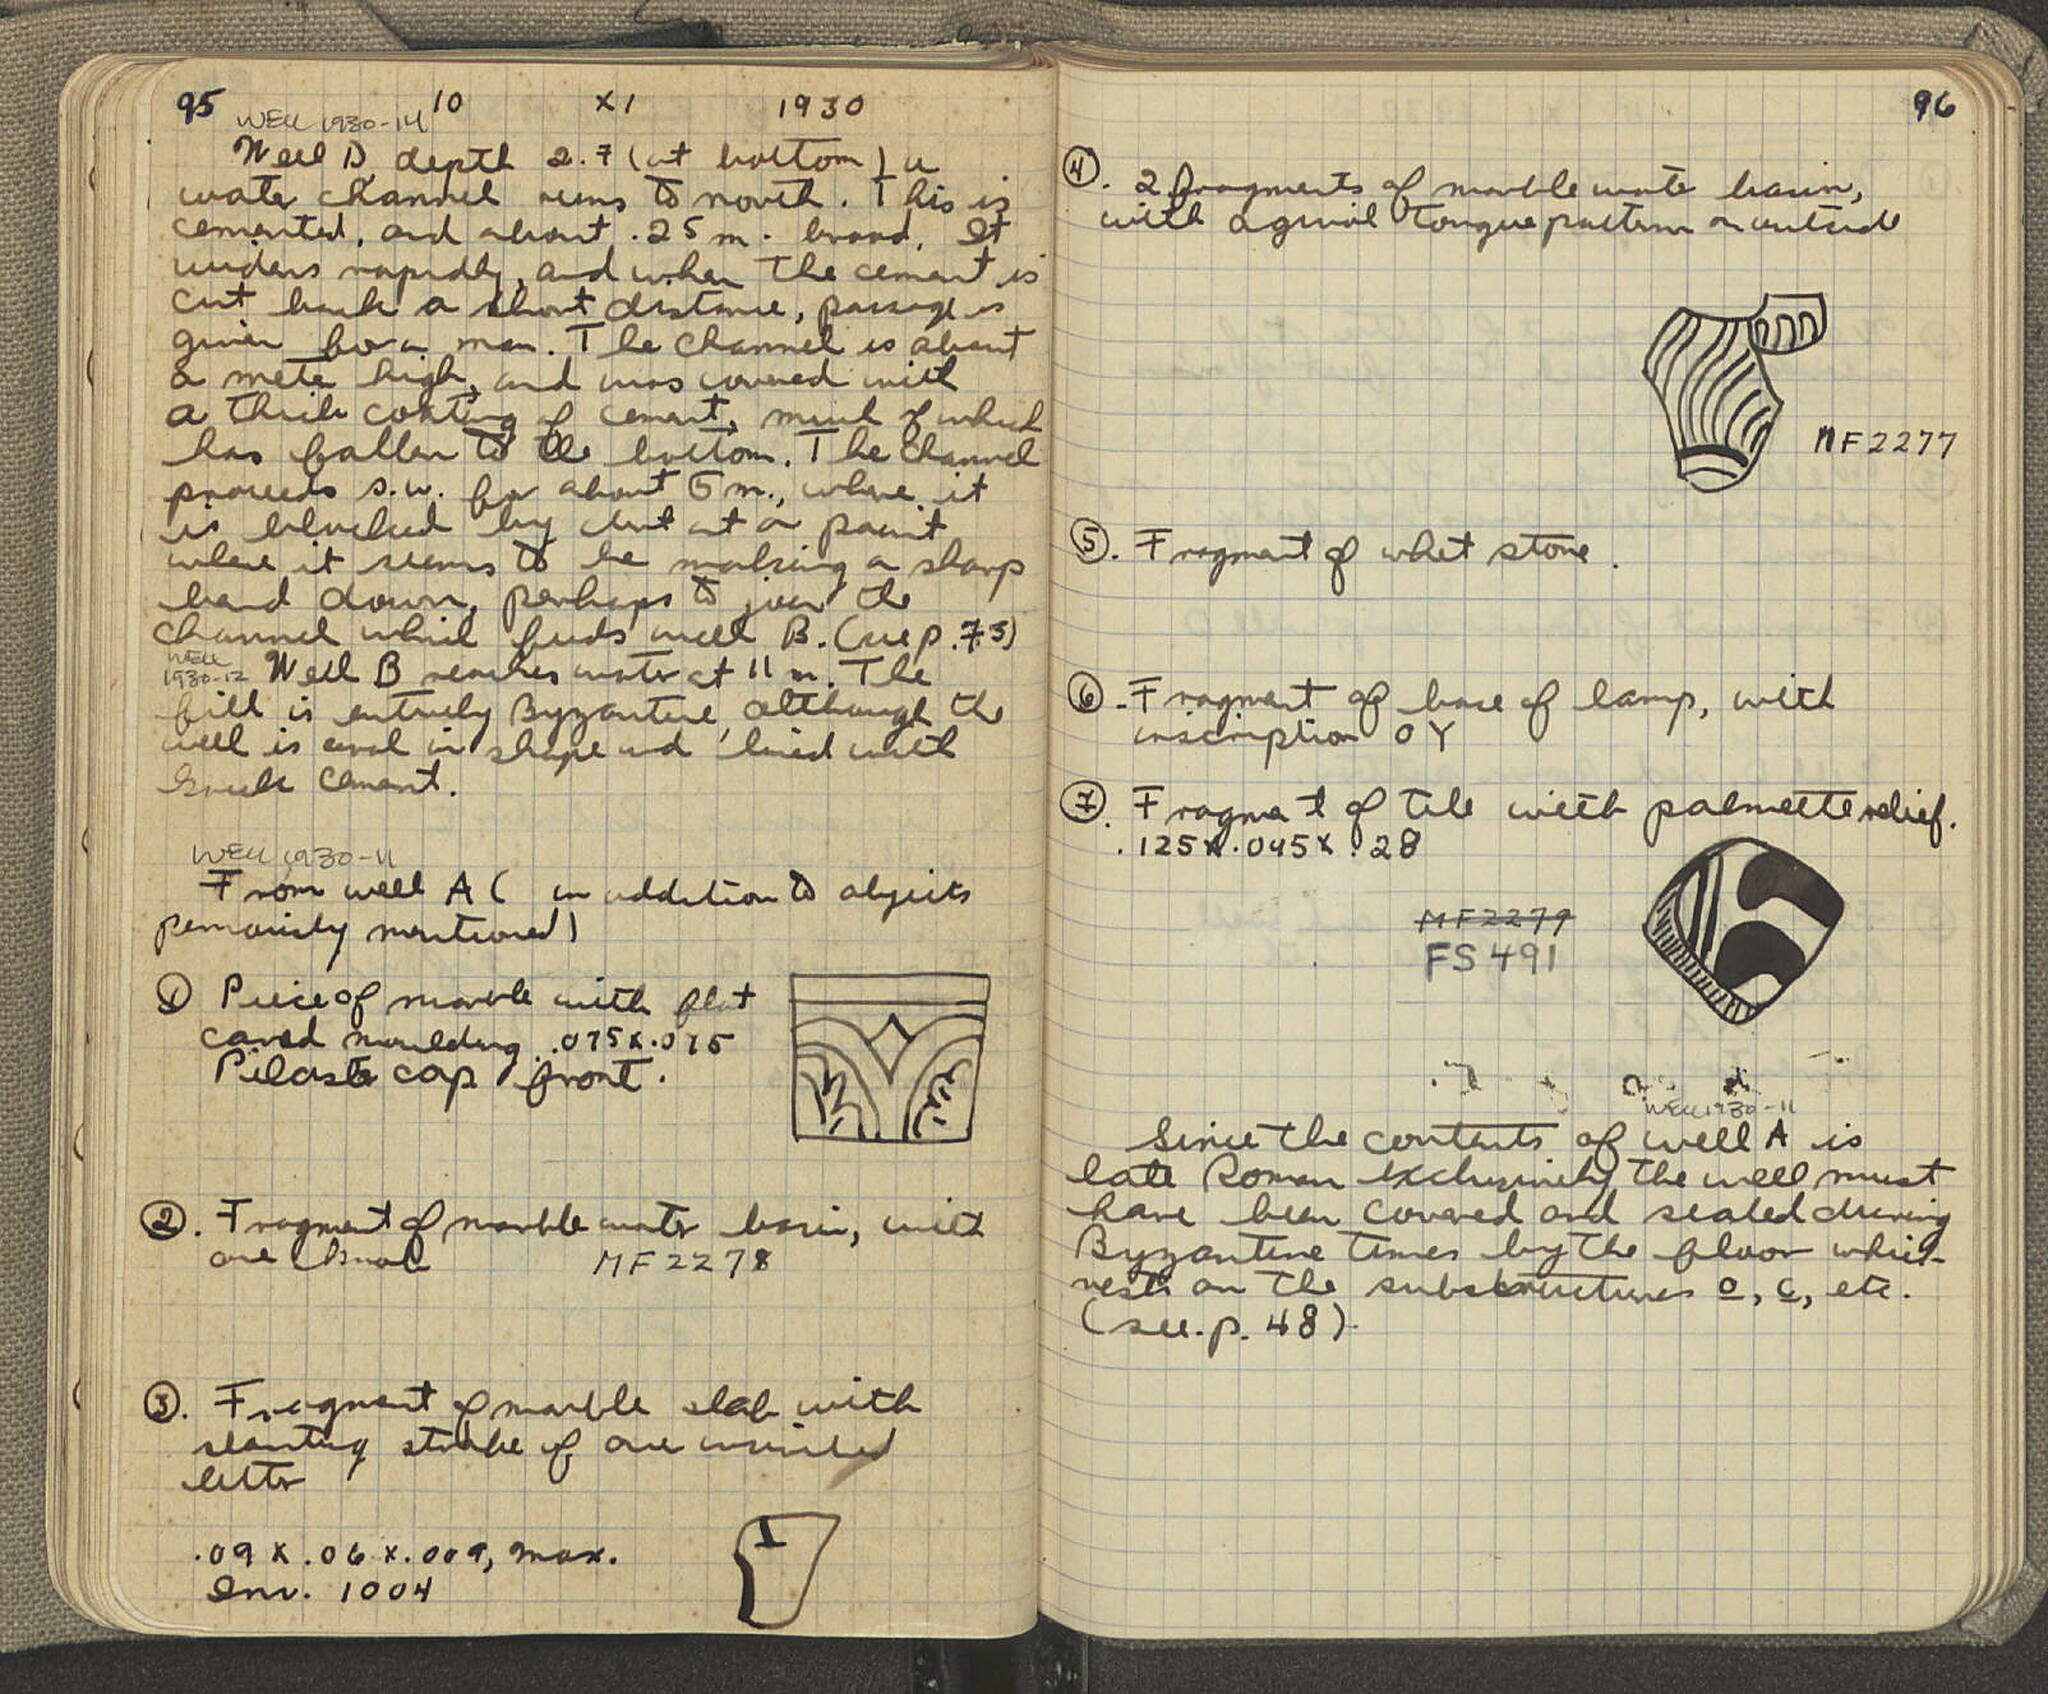 95 10 XI 1930
WELL 1930-14
Well D, depth 2.7 (at bottom) a
water channel runs to north. This is
cemented, and about .25 m. broad. It
widens rapidly, and when the cement is
cut back a short distance, passage is
given for a man. The channel is about
a meter high, and was covered with
a thick coating of cement, much of which
has fallen to the bottom. The channel
proceeds s.w. for about 5 m., where it
is blocked by dirt at a point
where it seems to be making a sharp
bend down, perhaps to join the
channel which feeds well B. (see p. 73)
WELL
1930-12 Well B reaches water at 11 m. The
fill is entirely Byzantine, although the
well is oval in shape and lined with
Greek cement.
WELL 1930-11
From well A ( in addition to objects
previously mentioned)
① Piece of marble with flat
carved moulding. .075 x .075
Pilaster cap front.
②. Fragment of marble water basin, with
one knob MF 2278
③. Fragment of marble slab with
slanting stroke of one inscribed
letter
.09 x .06 x .009, max.
Inv. 1004
96
④. 2 fragments of marble water basin,
with tongue pattern on outside
MF 2277
⑤. Fragment of whet stone.
⑥. Fragment of base of lamp, with
inscription OY
⑦. Fragment of tile with palmette relief.
.125 x .045 x .28
MF 2279
FS 491
WELL 1930-11
Since the contents of well A is
late Roman exclusively the well must
have been covered and sealed during
Byzantine times by the floor which
rests on the substructures c, etc.
(see p. 48).